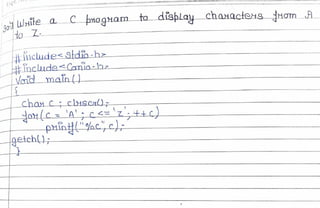 30) Write a C program to display characters from A
to Z.
#include<stdio.h>
#include<conio.h>
Void main()
{
Char C; clrscr();
for(c = 'A'; c <= 'Z'; ++c)
printf("%c", c);
getch();
}